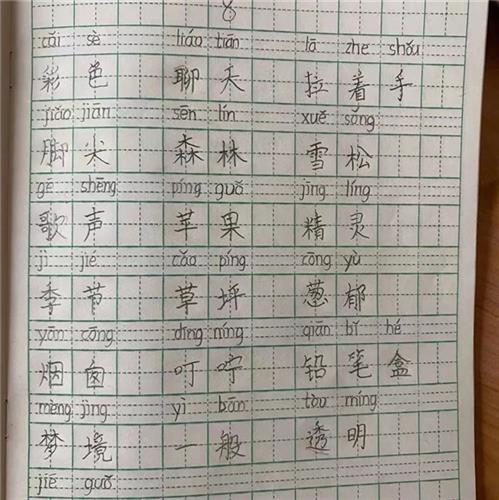 8
cǎi sè liáo tiān lā zhe shǒu
彩色 聊天 拉着手
jiǎo jiān sēn lín xuě sōng
脚尖 森林 雪松
gē shēng píng guǒ jīng líng
歌声 苹果 精灵
jì jié cǎo píng cōng yù
季节 草坪 葱郁
yān cōng dīng níng qiān bǐ hé
烟囱 叮咛 铅笔盒
mèng jìng yì bān tòu míng
梦境 一般 透明
jié guǒ